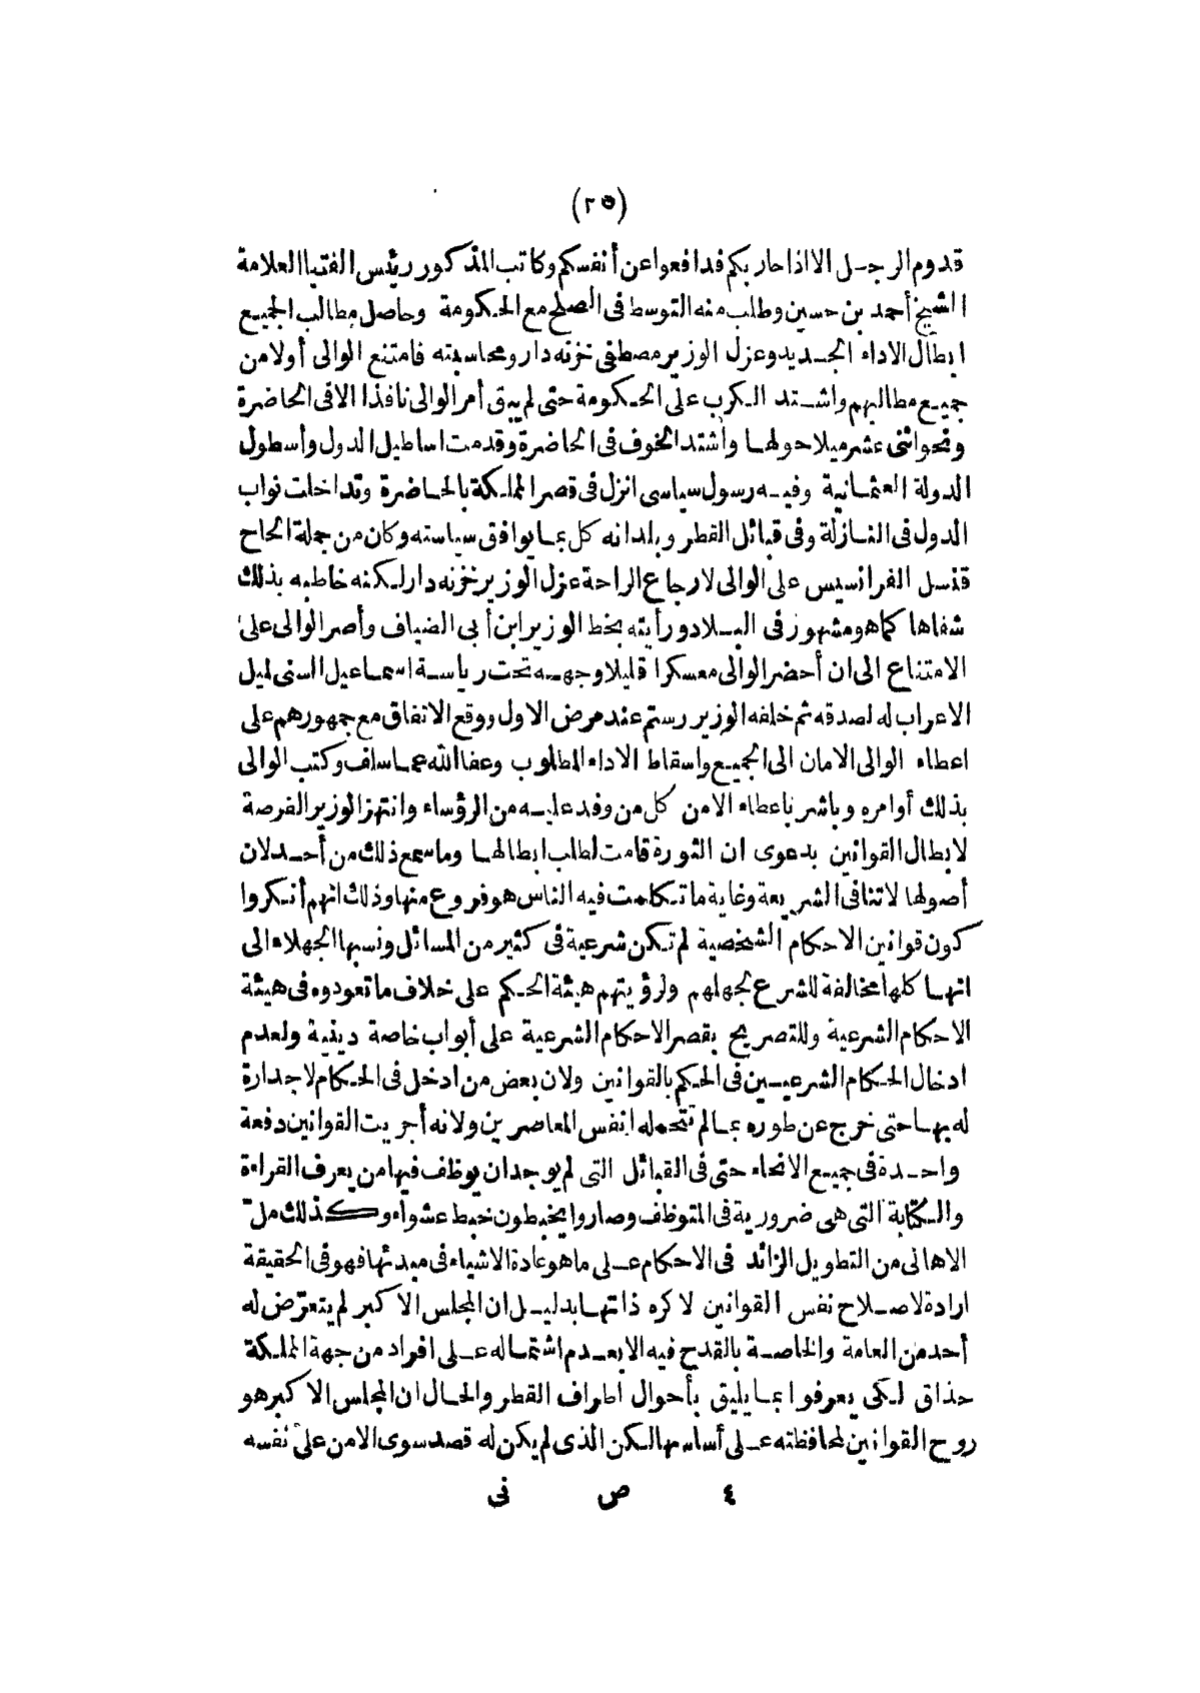 (٢٥)
قدوم الرجل الا اذا حاربكم فدافعوا عن أنفسكم وكاتب المذكور رئيس الفتيا العلامة
الشيخ أحمد بن حسين وطلب منه التوسط فى الصلح مع الحكومة وحاصل مطالب الجميع
ابطال الاداء الجديد وعزل الوزير مصطفى خزنه دار ومحاسبته فامتنع الوالى أولا من
جميع مطالبهم واشتد الكرب على الحكومة حتى لم يبق أمر الوالى نافذا الا فى الحاضرة
ونحو اثنى عشر ميلا حولها واشتد الخوف فى الحاضرة وقدمت اساطيل الدول وأسطول
الدولة العثمانية وفيه رسول سياسى انزل فى قصر المملكة بالحاضرة وتداخلت نواب
الدول فى النازلة وفى قبائل القطر وبلدانه كل بما يوافق سياسته وكان من جملة الحاح
قنسل الفرانسيس على الوالى لارجاع الراحة عزل الوزير خزنه دار لكنه خاطبه بذلك
شفاها كما هو مشهور فى البلاد ورأيته بخط الوزير ابن أبى الضياف وأصر الوالى على
الامتناع الى ان أحضر الوالى معسكرا قليلا وجهه تحت رياسة اسماعيل السنى لميل
الاعراب له لصدقه ثم خلفه الوزير رستم عند مرض الاول ووقع الاتفاق مع جمهورهم على
اعطاء الوالى الامان الى الجميع واسقاط الاداء المطلوب وعفا الله عما سلف وكتب الوالى
بذلك أوامره وباشر باعطاء الامن كل من وفد عليه من الرؤساء وانتهز الوزير الفرصة
لابطال القوانين بدعوى ان الثورة قامت لطلب ابطالها وما سمع ذلك من أحد لان
أصولها لا تنافى الشريعة وغاية ما تكلمت فيه الناس هو فروع منها وذلك انهم أنكروا
كون قوانين الاحكام الشخصية لم تكن شرعية فى كثير من المسائل ونسبها الجهلاء الى
انها كلها مخالفة للشرع لجهلهم ولرؤيتهم هيئة الحكم على خلاف ما تعودوه فى هيئة
الاحكام الشرعية وللتصريح بقصر الاحكام الشرعية على أبواب خاصة دينية ولعدم
ادخال الحكام الشرعيين فى الحكم بالقوانين ولان بعض من ادخل فى الحكام لا جدارة
له بها حتى خرج عن طوره بما لم تتحمله انفس المعاصرين ولانه أجريت القوانين دفعة
واحدة فى جميع الانحاء حتى فى القبائل التى لم يوجد ان يوظف فيها من يعرف القراءة
والكتابة التى هى ضرورية فى المتوظف وصاروا يخبطون خبط عشواء وكذلك ملّ
الاهالى من التطويل الزائد فى الاحكام على ما هو عادة الاشياء فى مبدئها فهو فى الحقيقة
ارادة لاصلاح نفس القوانين لا كره ذاتها بدليل ان المجلس الاكبر لم يتعرّض له
أحد من العامة والخاصة بالقدح فيه الا بعدم اشتماله على افراد من جهة المملكة
حذاق لكى يعرفوا بما يليق بأحوال اطراف القطر والحال ان المجلس الاكبر هو
روح القوانين لمحافظته على أساسها لكن الذى لم يكن له قصد سوى الامن على نفسه
٤ ص نى